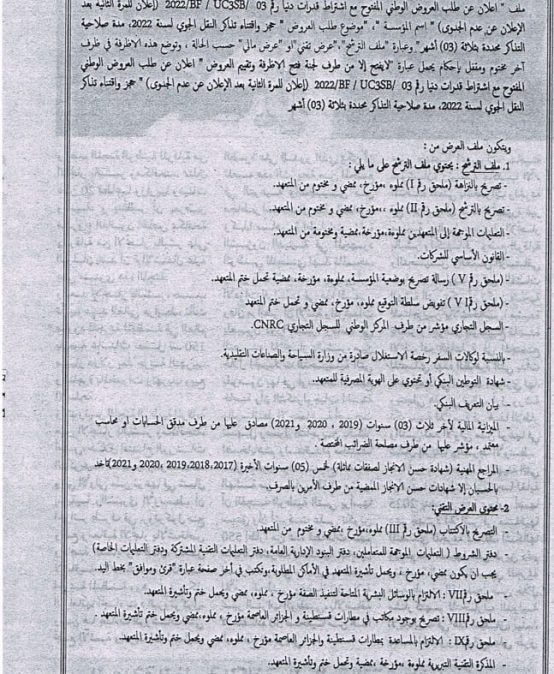 ملف " اعلان عن طلب العروض الوطني المفتوح مع اشتراط قدرات دنيا رقم 03 /2022/BF / UC3SB (إعلان للمرة الثانية بعد
الإعلان عن عدم الجدوى) " اسم المؤسسة "، "موضوع طلب العروض " حجز واقتناء تذاكر النقل الجوي لسنة 2022، مدة صلاحية
التذاكر محددة بثلاثة (03) أشهر" وعبارة "ملف الترشح"،"عرض تقني"او "عرض مالي" حسب الحالة ، وتوضع هذه الاظرفة في ظرف
آخر مختوم ومقفل بإحكام يحمل عبارة "لايفتح إلا من طرف لجنة فتح الاظرفة وتقييم العروض " اعلان عن طلب العروض الوطني
المفتوح مع اشتراط قدرات دنيا رقم 03 /2022/BF / UC3SB (إعلان للمرة الثانية بعد الإعلان عن عدم الجدوى) " حجز واقتناء تذاكر
النقل الجوي لسنة 2022، مدة صلاحية التذاكر محددة بثلاثة (03) أشهر
ويتكون ملف العرض من :
1. ملف الترشح : يحتوي ملف الترشح على ما يلي :
- تصريح بالنزاهة (ملحق رقم I) مملوء ،مؤرخ، ممضي و مختوم من المتعهد.
- تصريح بالترشح (ملحق رقم II) مملوء ،،مؤرخ، ممضي و مختوم من المتعهد.
- التعليمات الموجهة إلى المتعهدين مملوءة،مؤرخة،ممضية ومختومة من المتعهد.
- القانون الأساسي للشركات.
- (ملحق رقم V ) رسالة تصريح بوضعية المؤسسة، مملوءة، مؤرخة، ممضية تحمل ختم المتعهد.
- (ملحق رقم VI ) تفويض سلطة التوقيع مملوء، مؤرخ، ممضي و تحمل ختم المتعهد
- السجل التجاري مؤشر من طرف المركز الوطني للسجل التجاري CNRC.
- بالنسبة لوكالات السفر رخصة الاستغلال صادرة من وزارة السياحة والصناعات التقليدية.
- شهادة التوطين البنكي أو تحتوي على الهوية المصرفية للمتعهد.
- بيان التعريف البنكي.
- الميزانية المالية لأخر ثلاث (03) سنوات (2019 ، 2020 و2021) مصادق عليها من طرف مدقق الحسابات او محاسب
معتمد ، مؤشر عليها من طرف مصلحة الضرائب المختصة .
- المراجع المهنية (شهادة حسن الانجاز لصفقات مماثلة) لخمس (05) سنوات الأخيرة (2017،2018،2019، 2020 و2021)تاخذ
بالحسبان إلا شهادات حسن الانجاز الممضية من طرف الآمرين بالصرف.
2- محتوى العرض التقني:
- التصريح بالاكتتاب (ملحق رقم III) مملوء،مؤرخ ،ممضي و مختوم من المتعهد.
- دفتر الشروط ( التعليمات الموجهة للمتعاملين، دفتر البنود الإدارية العامة، دفتر التعليمات التقنية المشتركة ودفتر التعليمات الخاصة)
يجب ان يكون ممضي، مؤرخ ، ويحمل تأشيرة المتعهد في الأماكن المطلوبة،وتكتب في آخر صفحة عبارة "قرئ وموافق" بخط اليد.
- ملحق رقمVII : الالتزام بالوسائل البشرية المتاحة لتنفيذ الصفقة مؤرخ ، مملوء، ممضي ويحمل ختم وتأشيرة المتعهد.
- ملحق رقمVIII : تصريح بوجود مكاتب في مطارات قسنطينة و الجزائر العاصمة مؤرخ ، مملوء،ممضي ويحمل ختم تأشيرة المتعهد .
- ملحق رقمIX : الالتزام بالمساعدة بمطارات قسنطينة والجزائر العاصمة مؤرخ ، مملوء، ممضي ويحمل ختم وتأشيرة المتعهد.
- المذكرة التقنية التبريرية مملوءة ،مؤرخة ، ممضية وتحمل ختم وتأشيرة المتعهد.